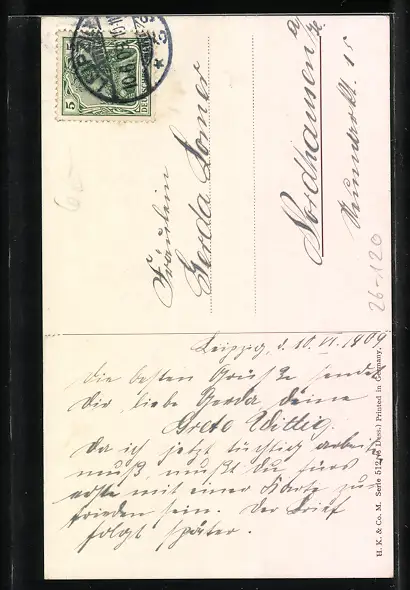 Fräulein
Gerda Somer
Nordhausen a/H.
15
Leipzig, d. 10. VI. 1909
Die besten Grüße sendet
Dir, liebe Gerda, deine
Grete Wittig.
Da ich jetzt tüchtig arbeiten
muß, mußt du fürs
erste mit einer Karte zu-
frieden sein. Der Brief
folgt später.
H. K. & Co. M. Serie 512 (6 Dess.) Printed in Germany.
5
26-120